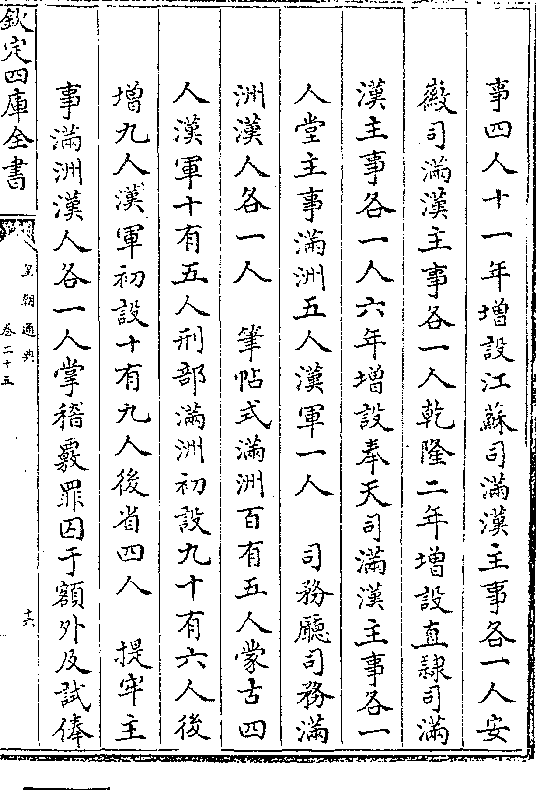 事四人十一年增設江蘇司滿漢主事各一人安
徽司滿漢主事各一人乾隆二年增設直隷司滿
漢主事各一人六年增設奉天司滿漢主事各一
人堂主事滿洲五人漢軍一人　司務廳司務滿
洲漢人各一人　筆帖式滿洲百有五人蒙古四
人漢軍十有五人刑部滿洲初設九十有六人後
增九人漢軍初設十有九人後省四人　提牢主
事滿洲漢人各一人掌稽覈罪囚于額外及試俸
欽定四庫全書
皇朝通典
卷二十五
十六